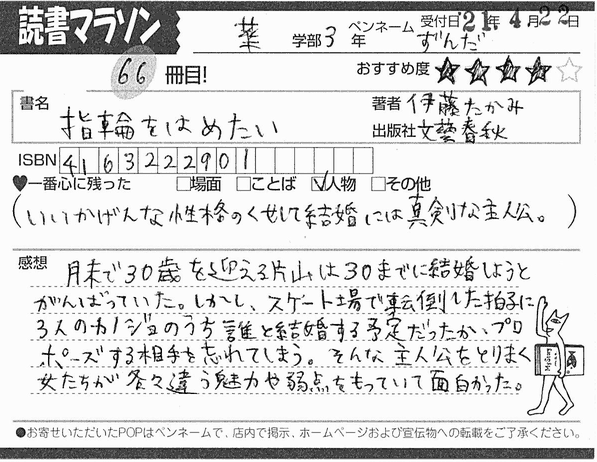 読書マラソン
薬 学部 3 年
ペンネーム ずんだ
受付日 '21年 4月 22日
66 冊目!
おすすめ度 ★★★★☆
書名
指輪をはめたい
著者 伊藤たかみ
出版社 文藝春秋
ISBN 4163222901
♥一番心に残った □場面 □ことば ☑人物 □その他
(いいかげんな性格のくせして結婚には真剣な主人公。)
感想
月末で30歳を迎える片山は30までに結婚しようと
がんばっていた。しかし、スケート場で転倒した拍子に
3人のカノジョのうち誰と結婚する予定だったか、プロ
ポーズする相手を忘れてしまう。そんな主人公をとりまく
女たちが各々違う魅力や弱点をもっていて面白かった。
●お寄せいただいたPOPはペンネームで、店内で掲示、ホームページおよび宣伝物への転載をご了承ください。